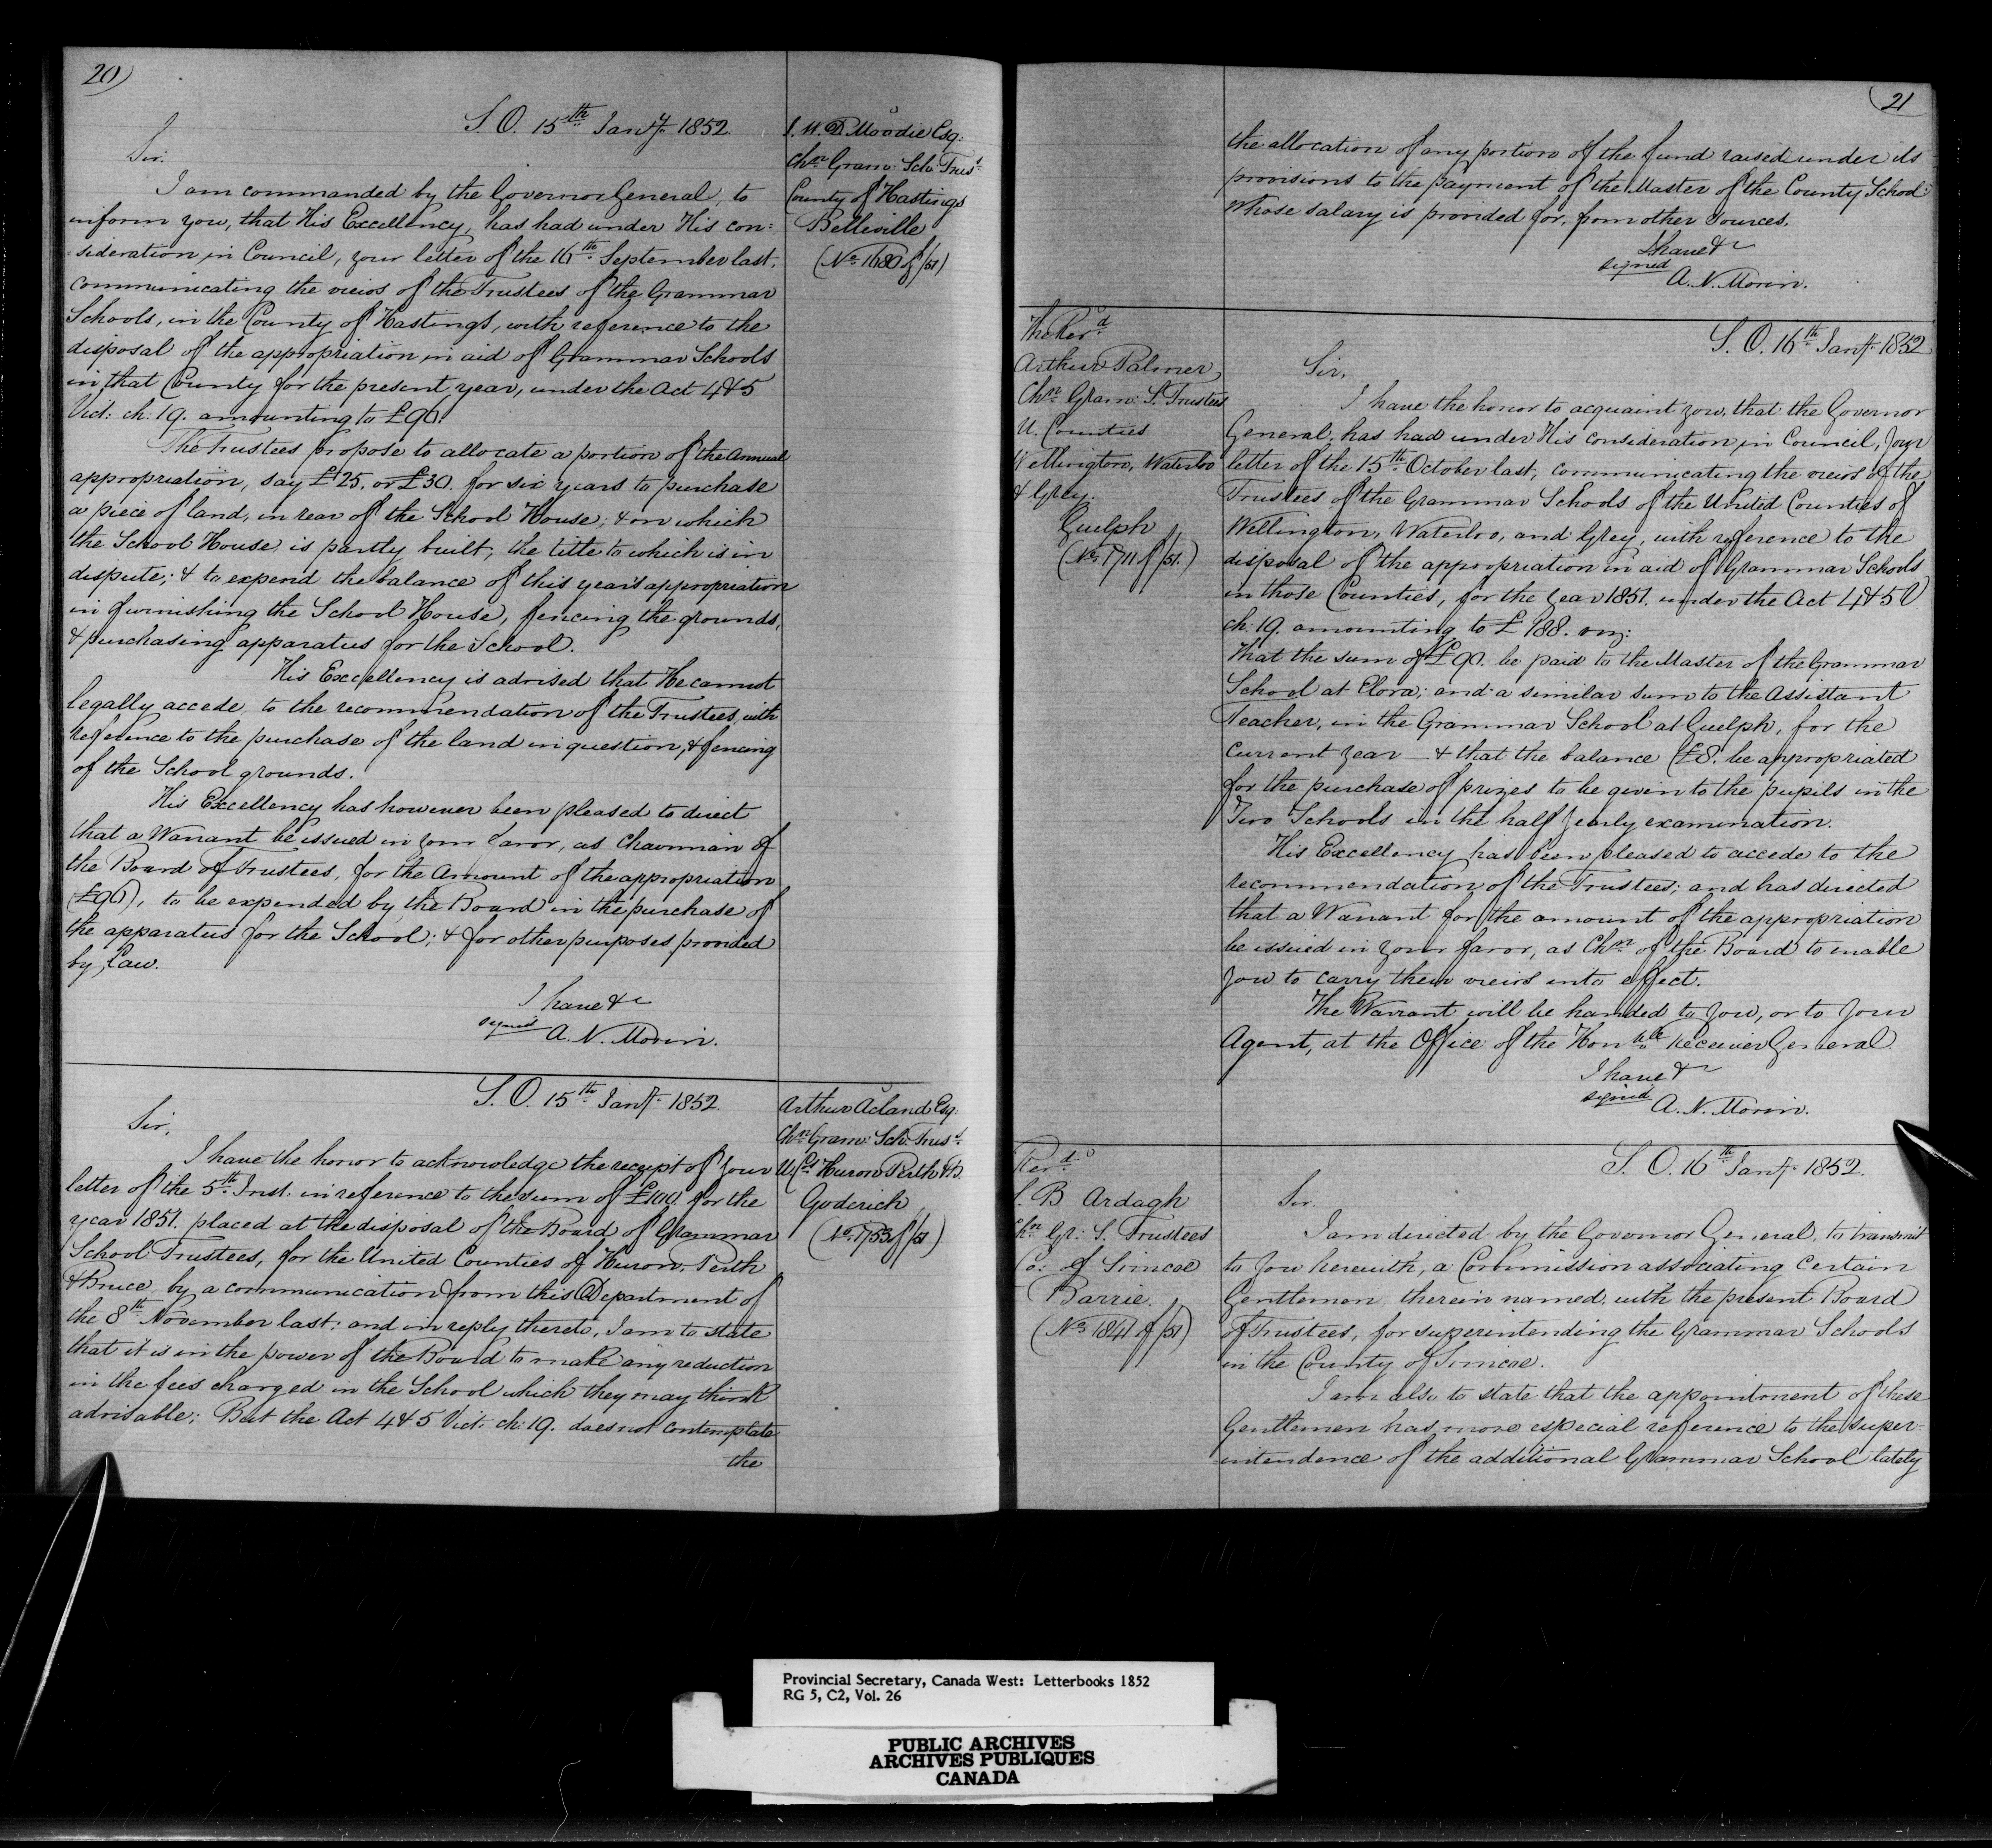 20)
S. O. 15th Jany. 1852.
Sir.
I am commanded by the Governor General, to
inform you, that His Excellency, has had under His con:
:sideration in Council, your letter of the 16th September last,
communicating the views of the Trustees of the Grammar
Schools, in the County of Hastings, with reference to the
disposal of the appropriation in aid of Grammar Schools
in that County for the present year, under the Act 4 & 5
Vict: ch: 19. amounting to £96.
The Trustees propose to allocate a portion of the Annual
appropriation, say £25. or £30. for six years to purchase
a piece of land, in rear of the School House; & on which
the School House is partly built; the title to which is in
dispute; & to expend the balance of this year's appropriation
in furnishing the School House, fencing the grounds,
& purchasing apparatus for the School.
His Excellency is advised that He cannot
legally accede to the recommendation of the Trustees, with
reference to the purchase of the land in question, & fencing
of the School grounds.
His Excellency has however been pleased to direct
that a Warrant be issued in your favor, as Chairman of
the Board of Trustees, for the Amount of the appropriation
(£96), to be expended by the Board in the purchase of
the apparatus for the School; & for other purposes provided
by Law.
I have &c
signed A. N. Morin.
J. W. D. Moodie Esq:
Chn Gram: Sch: Trust
County of Hastings
Belleville
(No 1680 of /51)
S. O. 15th Jany. 1852.
Sir,
I have the honor to acknowledge the receipt of your
letter of the 5th Inst. in reference to the sum of £100. for the
year 1851. placed at the disposal of the Board of Grammar
School Trustees, for the United Counties of Huron, Perth
& Bruce, by a communication from this Department of
the 8th November last; and in reply thereto, I am to state
that it is in the power of the Board to make any reduction
in the fees charged in the School which they may think
advisable; But the Act 4 & 5 Vict: ch: 19. does not contemplate
the
Arthur Acland Esq.
Chn Gram: Sch: Trust.
U. Cs Huron Perth & B.
Goderich
(No 1753 of /51)
21
the allocation of any portion of the fund raised under its
provisions to the payment of the Master of the County School
whose salary is provided for, from other sources.
I have &c
signed
A. N. Morin.
The Revd
Arthur Palmer
Chn Gram: S. Trustees
U. Counties
Wellington, Waterloo
& Grey.
Guelph
(No 1711 of /51.)
S. O. 16th Jany. 1852
Sir,
I have the honor to acquaint you, that the Governor
General, has had under His consideration in Council, your
letter of the 15th October last, communicating the views of the
Trustees of the Grammar Schools of the United Counties of
Wellington, Waterloo, and Grey, with reference to the
disposal of the appropriation in aid of Grammar Schools
in those Counties, for the year 1851. under the Act 4 & 5 V
ch: 19. amounting to £188. viz:
That the sum of £90. be paid to the Master of the Grammar
School at Elora; and a similar sum to the Assistant
Teacher, in the Grammar School at Guelph, for the
current year — & that the balance (£8. be appropriated
for the purchase of prizes to be given to the pupils in the
Two Schools in the half yearly examination.
His Excellency has been pleased to accede to the
recommendation of the Trustees; and has directed
that a Warrant for the amount of the appropriation
be issued in your favor, as Chn of the Board to enable
you to carry their views into effect.
The Warrant will be handed to you, or to your
Agent, at the Office of the Honble Receiver General.
I have &c
signed A. N. Morin.
Revd
S. B Ardagh
Chn Gr: S. Trustees
Co: of Simcoe
Barrie.
(No 1841 of /51)
S. O. 16th Jany. 1852.
Sir.
I am directed by the Governor General, to transmit
to you herewith, a Commission associating certain
Gentlemen therein named, with the present Board
of Trustees, for superintending the Grammar Schools
in the County of Simcoe.
I am also to state that the appointment of these
Gentlemen has more especial reference to the super-
-intendence of the additional Grammar School lately
Provincial Secretary, Canada West: Letterbooks 1852
RG 5, C2, Vol. 26
PUBLIC ARCHIVES
ARCHIVES PUBLIQUES
CANADA